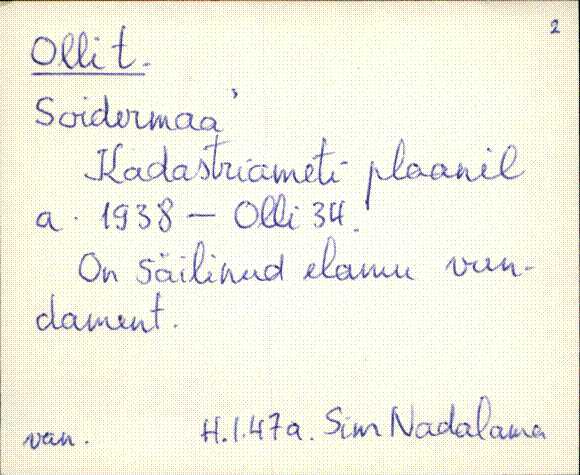 2
Olli t.
Soidermaa
Kadastriameti plaanil
a. 1938 — Olli 34.
On säilinud elamu vun-
dament.
van. H.I.47a. Sim Nadalama